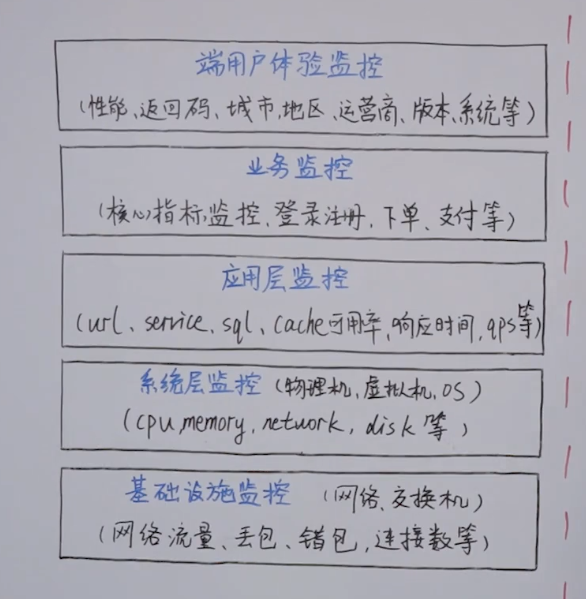 端用户体验监控
(性能、返回码、城市,地区、运营商、版本、系统等)
业务监控
(核心指标监控、登录注册、下单、支付等)
应用层监控
(url、service、sql、cache可用率,响应时间,qps等)
系统层监控 (物理机,虚拟机,OS)
(cpu,memory,network,disk等)
基础设施监控 (网络、交换机)
(网络流量、丢包、错包,连接数等)